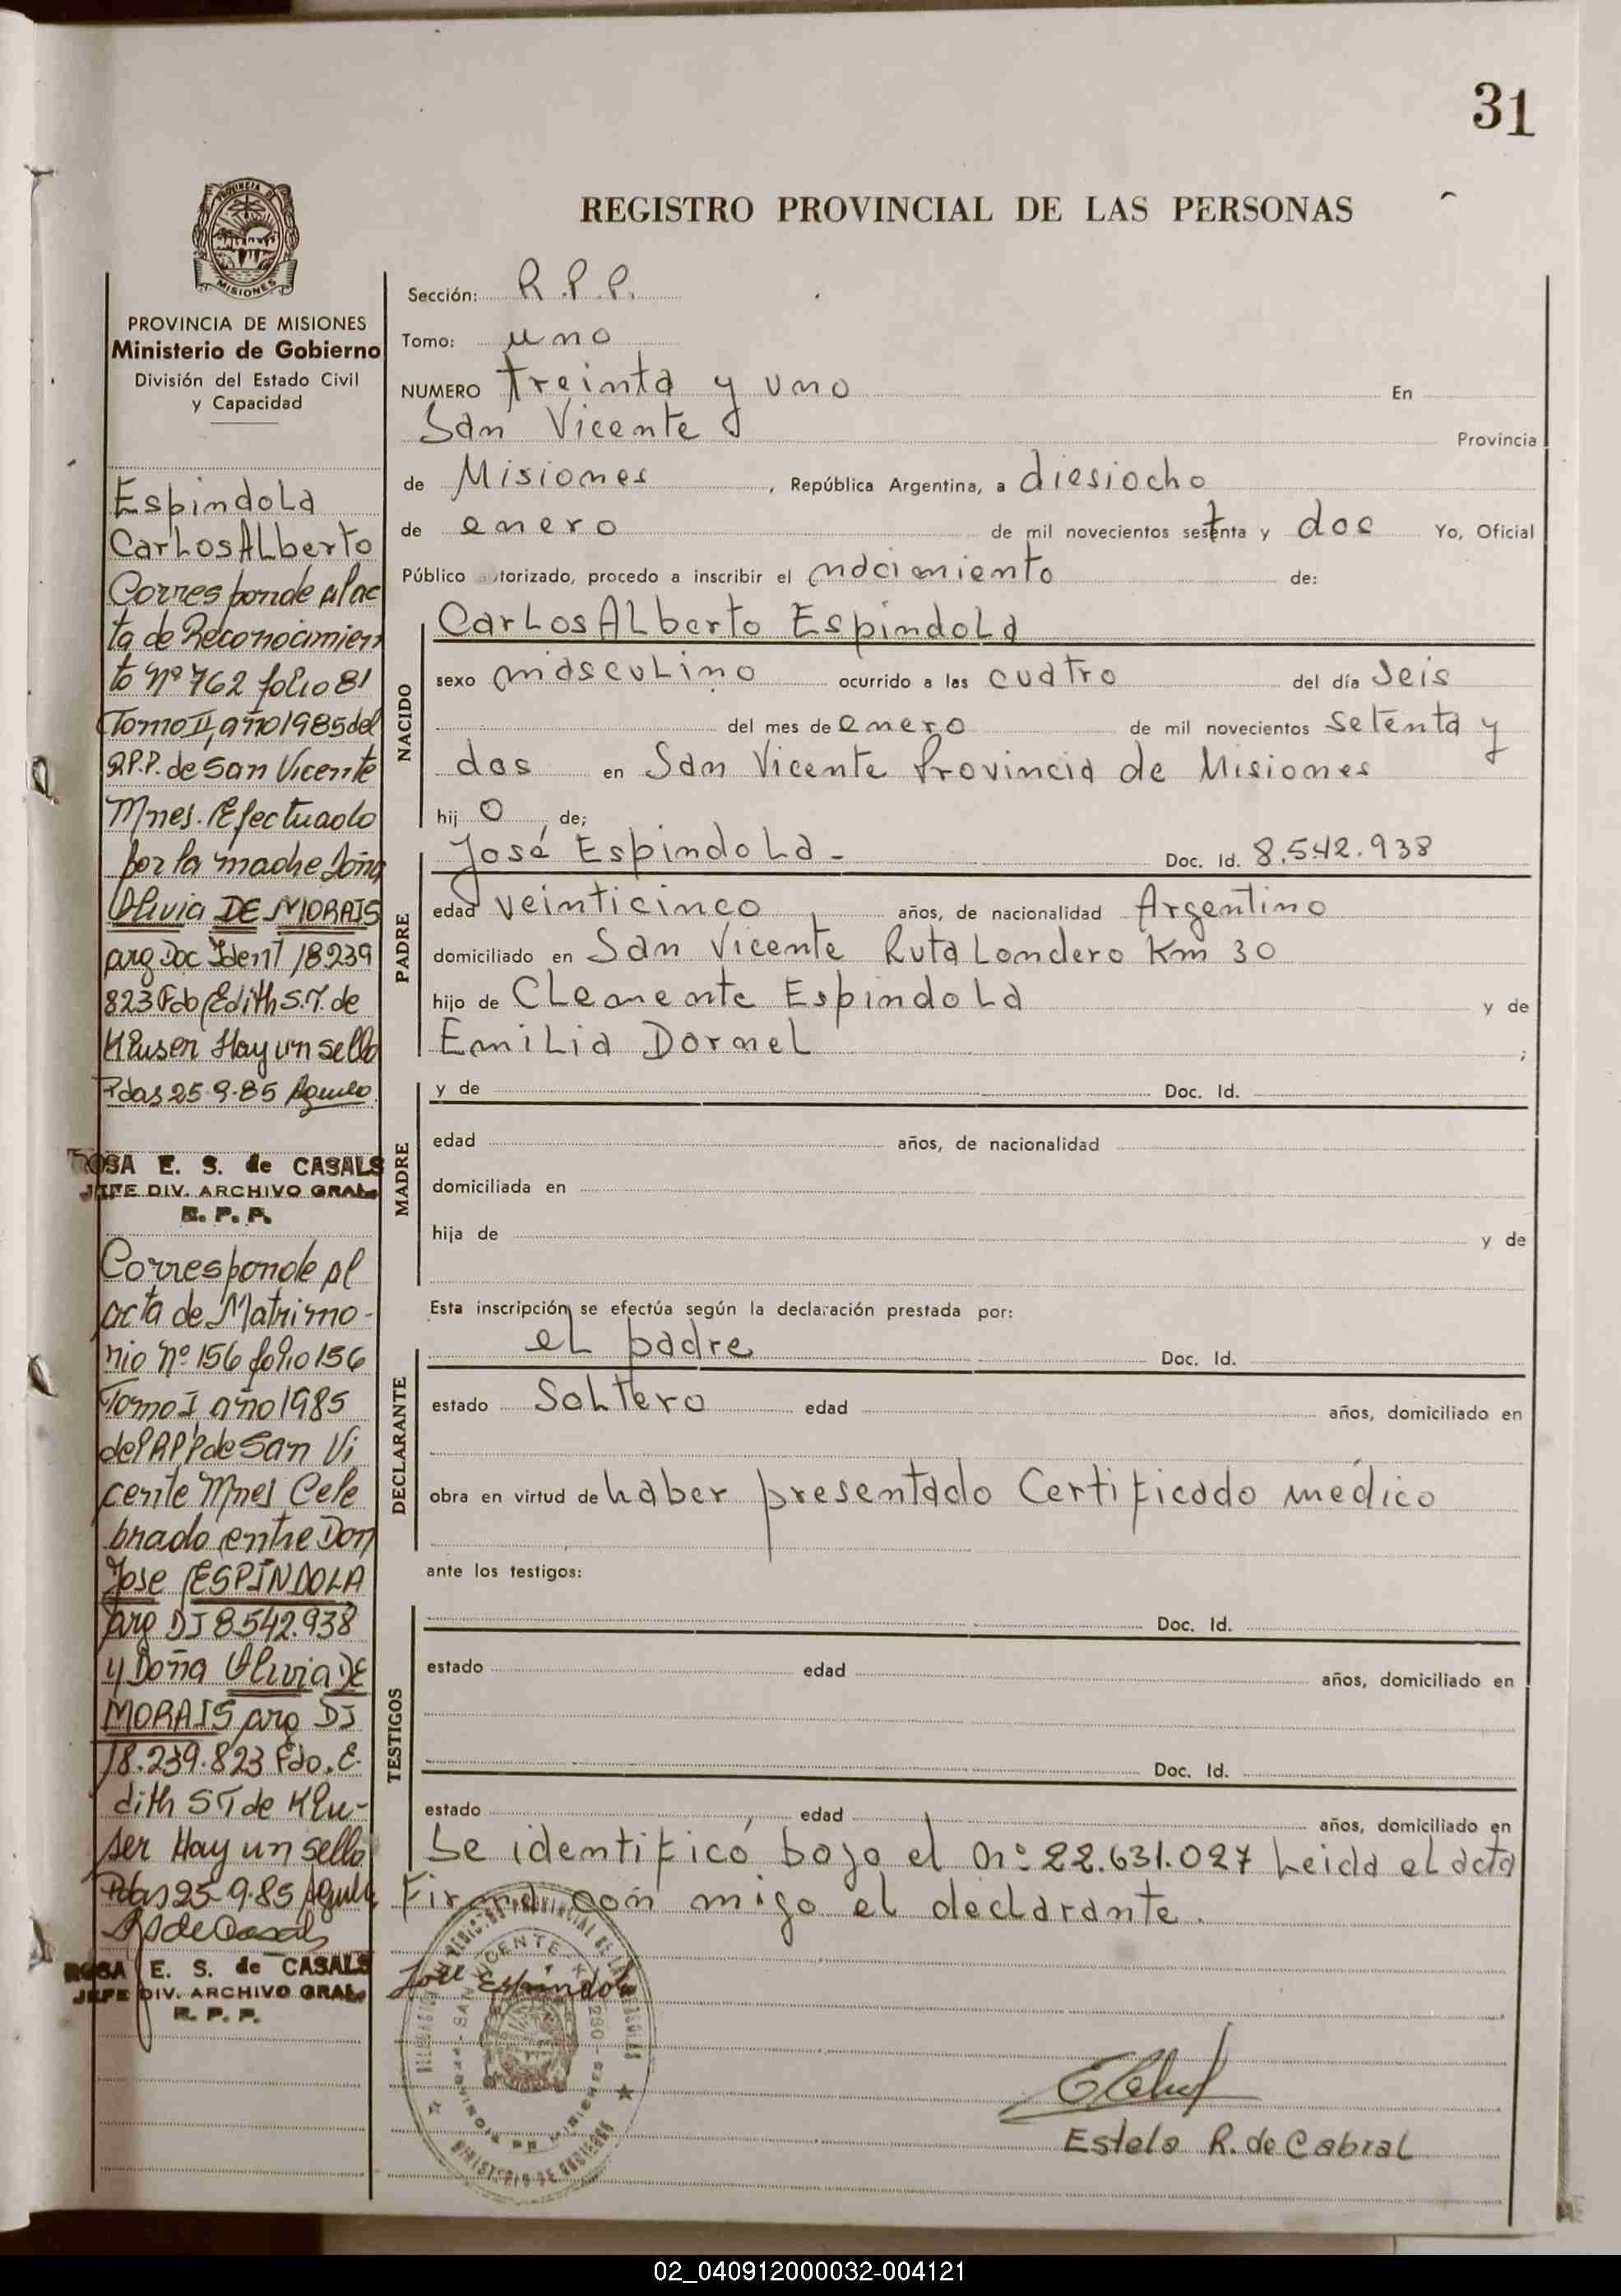 31
REGISTRO PROVINCIAL DE LAS PERSONAS
PROVINCIA DE MISIONES
Ministerio de Gobierno
División del Estado Civil
y Capacidad
Espindola
Carlos Alberto
Corresponde al ac
ta de Reconocimien
to Nº 762 folio 81
Tomo II, año 1985 del
R.P.P. de San Vicente
Mnes. Efectuado
por la madre Doña
Olivia DE MORAIS
arg Doc Ident 18239
823 Fdo Edith S.T. de
Kluser Hay un sello
Pdas 25-9-85
ROSA E. S. de CASALS
JEFE DIV. ARCHIVO GRAL.
R. P. P.
Corresponde al
acta de Matrimo-
nio Nº 156 folio 156
Tomo I año 1985
del RPP de San Vi
cente Mnes Cele
brado entre Don
Jose ESPINDOLA
arg DI 8.542.938
y Doña Olivia DE
MORAIS arg DI
18.239.823 Fdo. E.
dith ST de Klu-
ser Hay un sello
Pdas 25-9-85
ROSA E. S. de CASALS
JEFE DIV. ARCHIVO GRAL.
R. P. P.
Sección: R.P.P.
Tomo: uno
NUMERO treinta y uno En
San Vicente Provincia
de Misiones, República Argentina, a diesiocho
de enero de mil novecientos setenta y dos Yo, Oficial
Público autorizado, procedo a inscribir el nacimiento de:
NACIDO
Carlos Alberto Espindola
sexo masculino ocurrido a las cuatro del día seis
del mes de enero de mil novecientos setenta y
dos en San Vicente Provincia de Misiones
hij o de;
PADRE
José Espindola - Doc. Id. 8.542.938
edad veinticinco años, de nacionalidad Argentino
domiciliado en San Vicente Ruta Londero Km 30
hijo de Clemente Espindola y de
Emilia Dornel ;
MADRE
y de Doc. Id.
edad años, de nacionalidad
domiciliada en
hija de y de
Esta inscripción se efectúa según la declaración prestada por:
DECLARANTE
el padre Doc. Id.
estado Soltero edad años, domiciliado en
obra en virtud de haber presentado Certificado médico
ante los testigos:
TESTIGOS
Doc. Id.
estado edad años, domiciliado en
Doc. Id.
estado edad años, domiciliado en
Se identificó bajo el nº 22.631.027 Leida el acta
Firma con migo el declarante.
Jose Espindola
Estela R. de Cabral
02_040912000032-004121